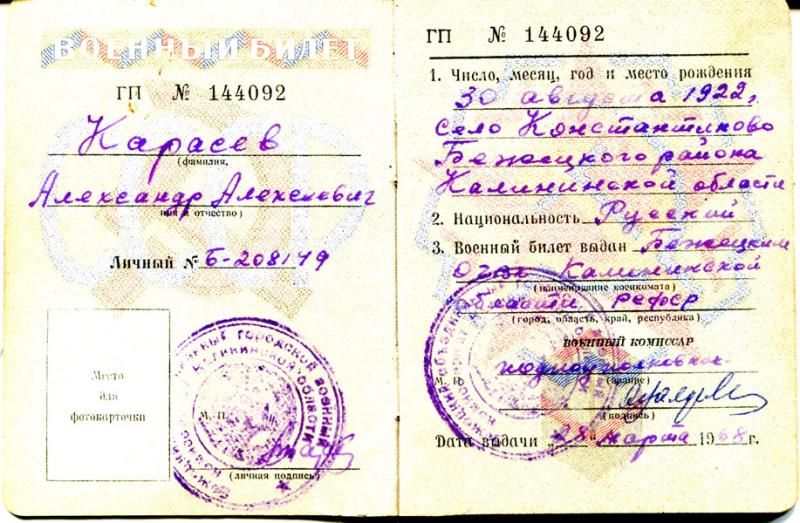 ВОЕННЫЙ БИЛЕТ
ГП № 144092
Карасев
(фамилия,
Александр Алексеевич
имя и отчество)
Личный № Б-208149
Место
для
фотокарточки
М. П.
(личная подпись)
ГП № 144092
1. Число, месяц, год и место рождения
30 августа 1922,
Село Константиново
Бежецкого района
Калининской области
2. Национальность Русский
3. Военный билет выдан Бежецким
Калининской
(наименование военкомата)
области РСФСР
(город, область, край, республика)
ВОЕННЫЙ КОМИССАР
подполковник
М. П.
(звание)
(подпись)
Дата выдачи „28" марта 1968 г.